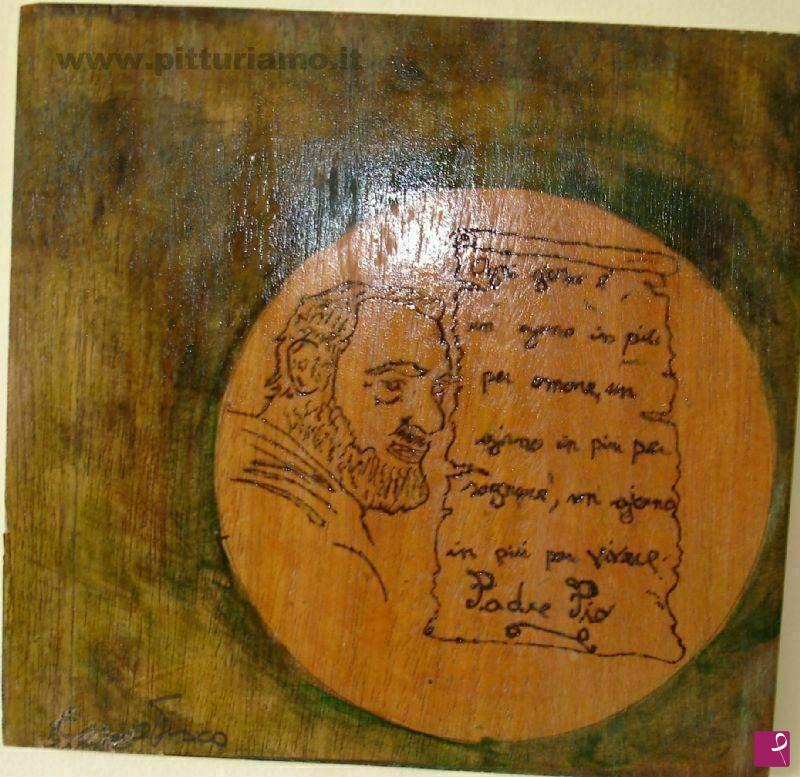 www.pitturiamo.it
Ogni giorno è
un giorno in più
per amare, un
giorno in più per
sognare, un giorno
in più per vivere.
Padre Pio